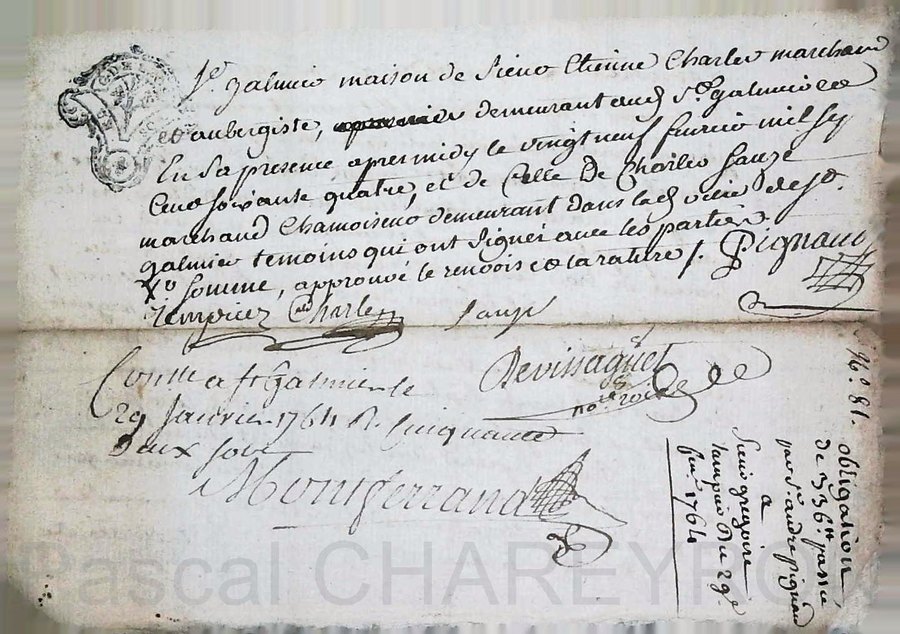 St. galmier maison de Sieur Etienne Charles marchand
et aubergiste, demeurant aud. St. galmier et
En Sa presence, apres midy le vingt neuf fevrier mil Sept
Cent soixante quatre, et de Celle De Charles Sauzé
marchand Chamoiseur demeurant dans lad. ville de St.
galmier temoins qui ont Signé avec les parties
Xo Somme, approuvé le renvois et la rature /. Pignaud
Charles Sauzé
Devissaguet
nore. roial
Conlle a St Galmier le
29 Janvier 1764 R. Cinquante
Deux sols
Montferrand
No. 81.
obligation
de 336tt passé
par Sr. andré pignaud
a
Sieur gregoire
Du 29e
fevr. 1764
Pascal CHAREYRON